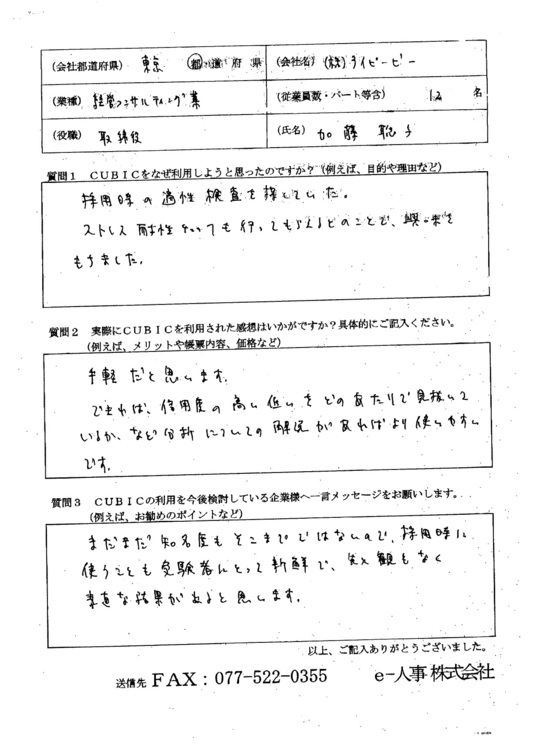 (会社都道府県) 東京 都・道・府・県 (会社名) (株)ライビービー
(業種) 経営コンサルティング業 (従業員数・パート等含) 12 名
(役職) 取締役 (氏名) 加藤 聡子
質問1 CUBICをなぜ利用しようと思ったのですか?(例えば、目的や理由など)
採用時の適性検査を探していた。
ストレス耐性チェックも行ってもらえるとのことで、興味を
もちました。
質問2 実際にCUBICを利用された感想はいかがですか?具体的にご記入ください。
(例えば、メリットや帳票内容、価格など)
手軽だと思います。
できれば、信用度の高い低いをどのあたりで見抜いて
いるか、など分析についての解説があればより使いやすい
です。
質問3 CUBICの利用を今後検討している企業様へ一言メッセージをお願いします。
(例えば、お勧めのポイントなど)
まだまだ知名度もそこまでではないので、採用時に
使うことも受験者にとって新鮮で、先入観もなく
素直な結果が出ると思います。
以上、ご記入ありがとうございました。
送信先 FAX:077-522-0355 e-人事株式会社